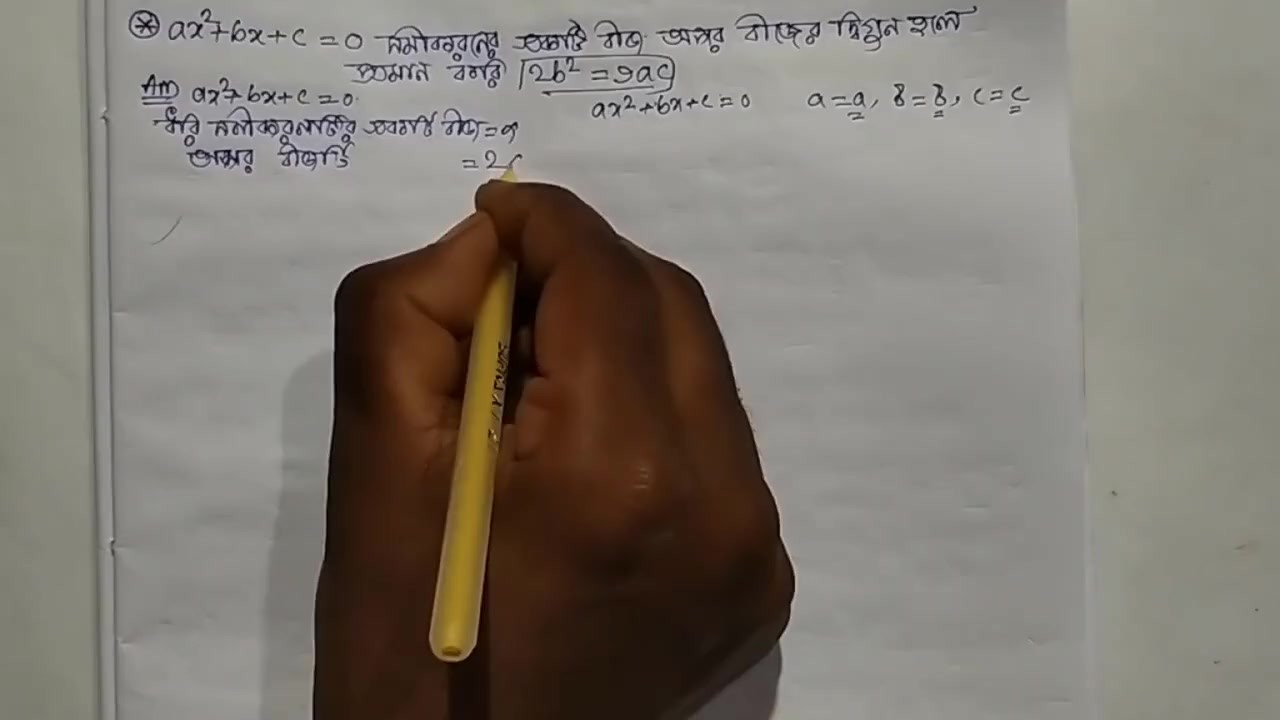 * ax²+bx+c = 0 সমীকরনের একটি বীজ অপর বীজের দ্বিগুন হলে
প্রমান করি 2b² = 9ac
Ans ax²+bx+c=0.
ax²+bx+c=0 a=a, b=b, c=c
ধরি সমীকরনটির একটি বীজ = α
অপর বীজটি = 2